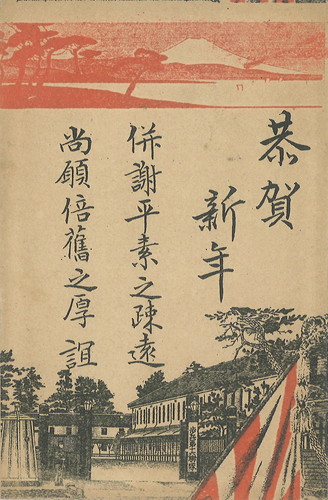 恭賀
新年
併謝平素之疎遠
尚願倍舊之厚誼